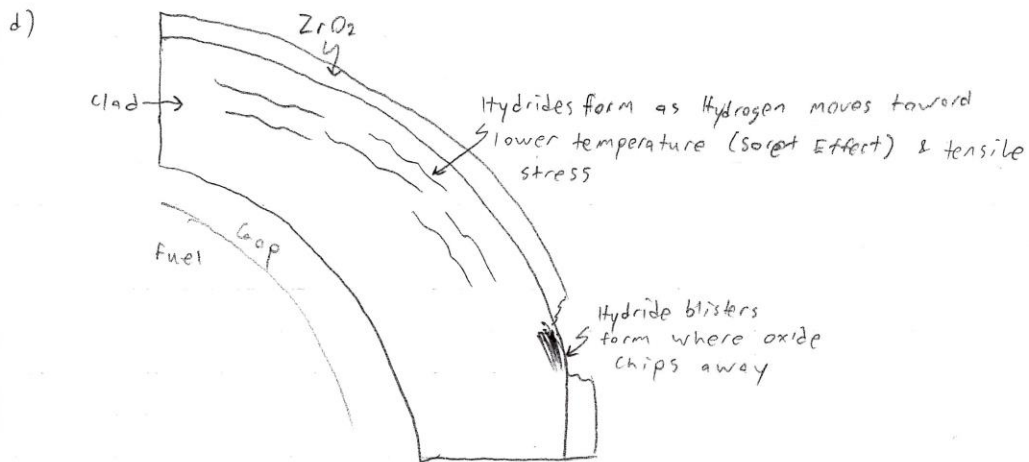 d)
ZrO2
Clad
Hydrides form as Hydrogen moves toward
lower temperature (Soret Effect) & tensile
stress
Gap
Fuel
Hydride blisters
form where oxide
chips away